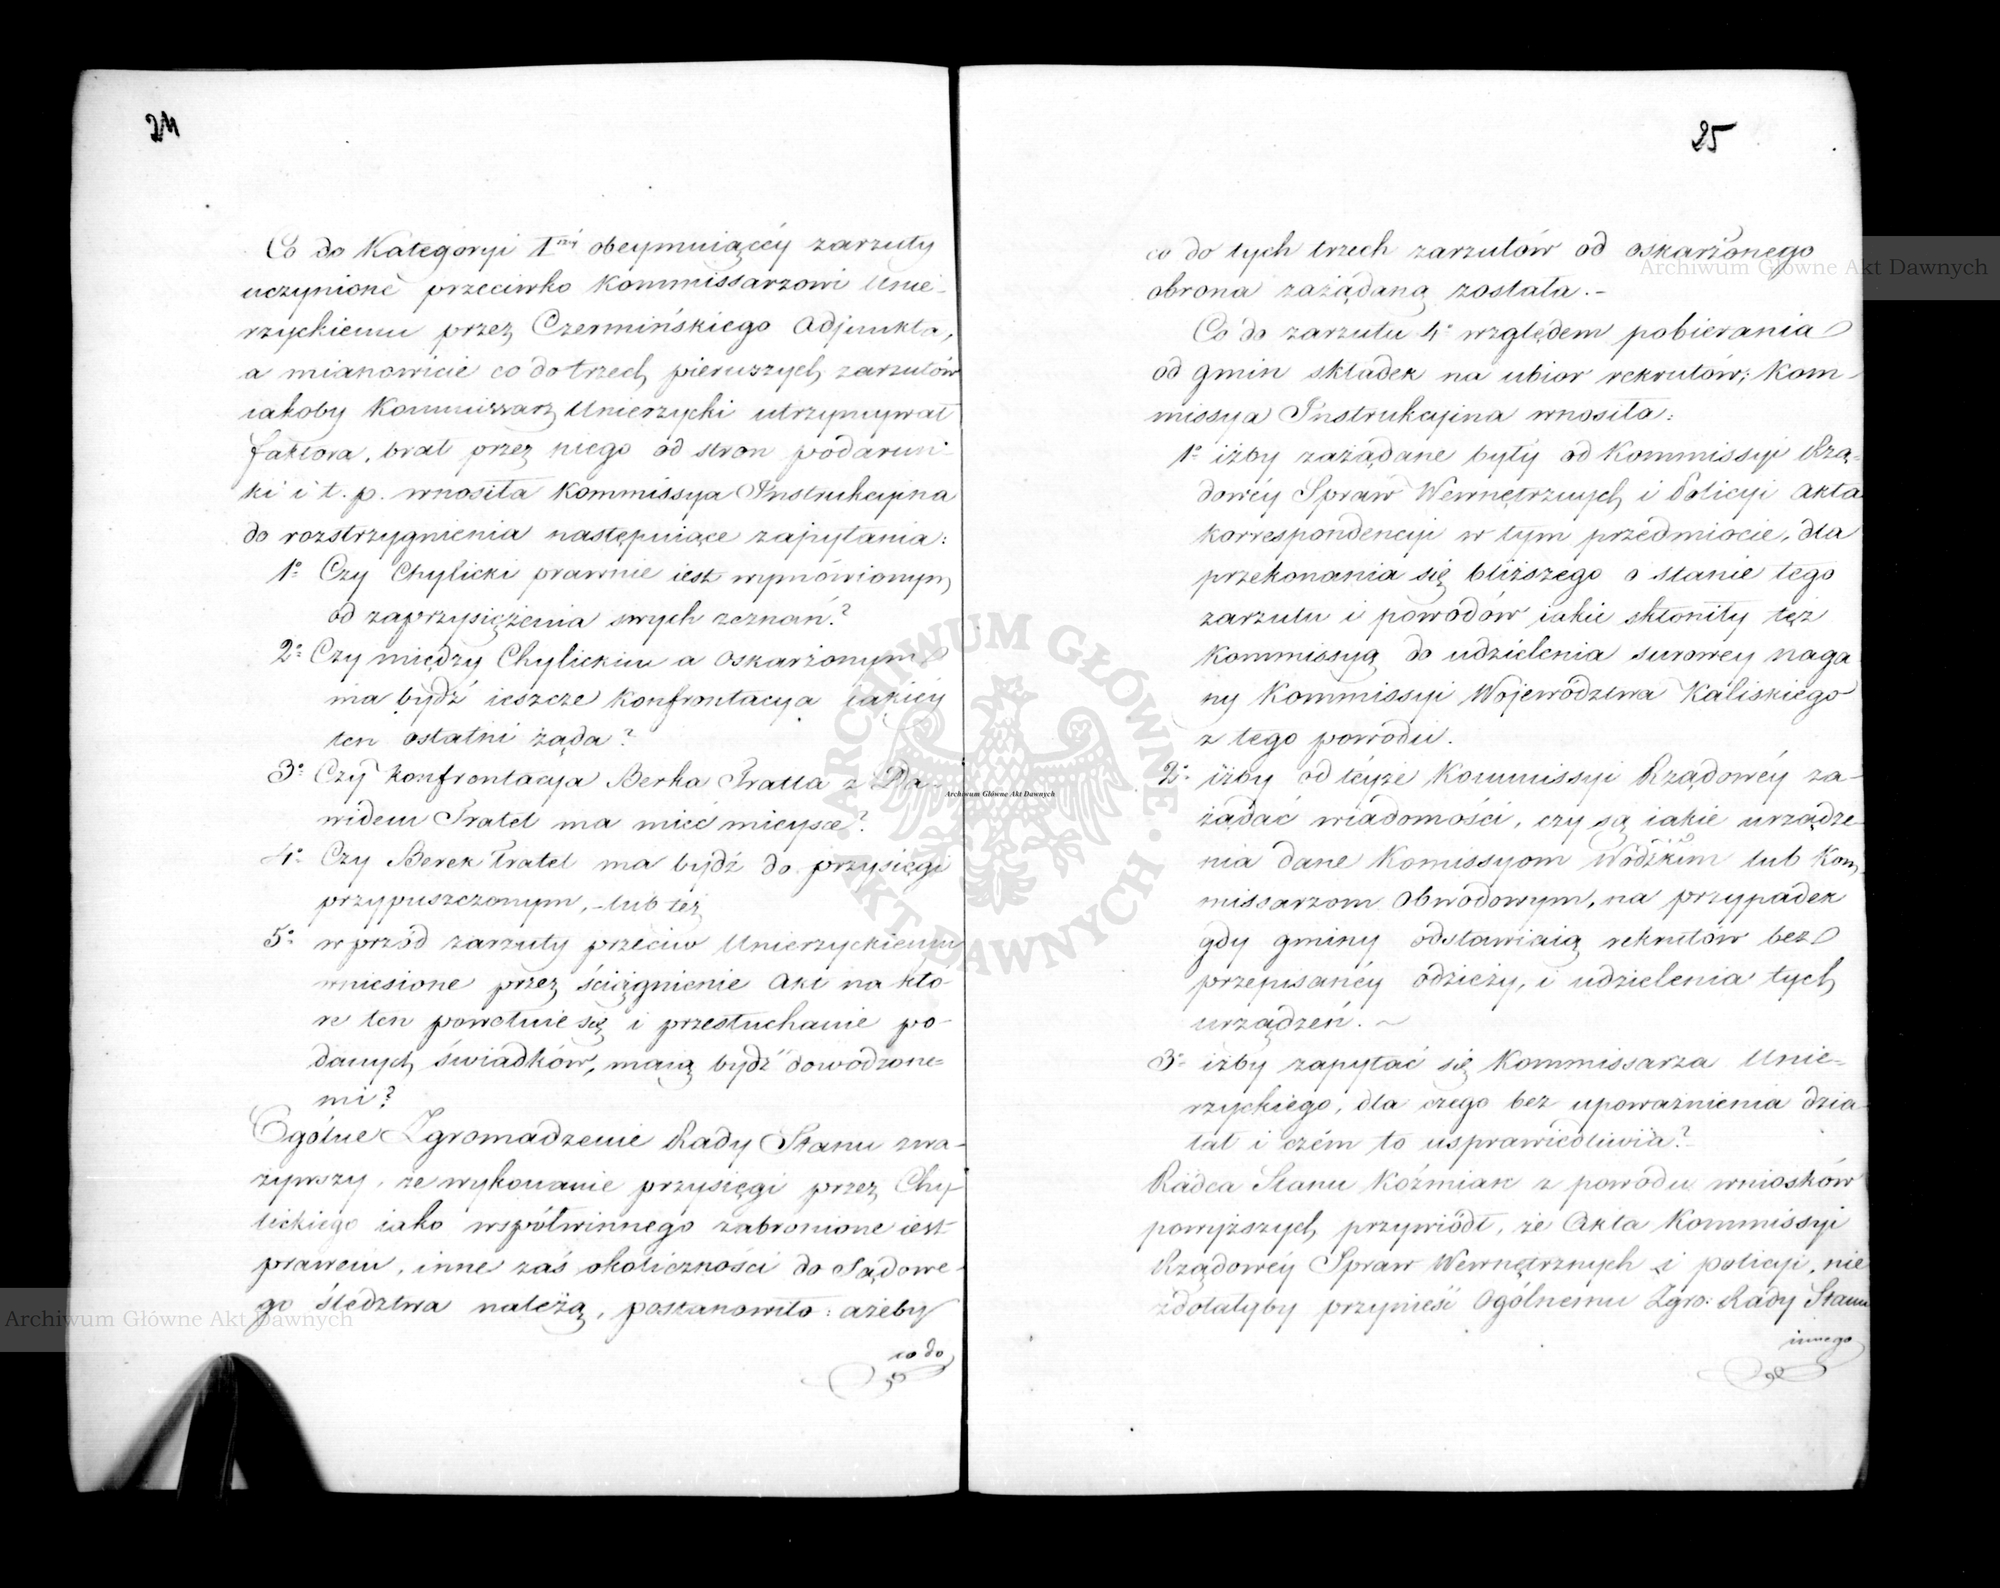 24
Co do Kategoryi I<sup>széj</sup> obeymuiącéy zarzuty
uczynione przeciwko Kommissarzowi Unie-
rzyckiemu przez Czermińskiego Adjunkta,
a mianowicie co do trzech pierwszych zarzutów
iakoby Kommissarz Unierzycki utrzymywał
faktora, brał przez niego od stron podarun-
ki i t. p. wnosiła Kommissya Instrukcyina
do rozstrzygnienia następuiące zapytania:
1º Czy Chylicki prawnie iest wymówionym
od zaprzysiężenia swych zeznań?
2º Czy między Chylickim a oskarżonym
ma bydź ieszcze konfrontacya iakiéy
ten ostatni żąda?
3º Czy konfrontacya Berka Fratla z Da-
widem Fratel ma mieć mieysce?
4º Czy Berek Fratel ma bydź do przysięgi
przypuszczonym, - lub też
5º w przód zarzuty przeciw Unierzyckiemu
wniesione przez ściągnienie Akt na któ-
re ten powołuie się i przesłuchanie po-
danych świadków, maią bydź dowodzone-
mi?
Ogólne Zgromadzenie Rady Stanu zwa-
żywszy, że wykonanie przysięgi przez Chy-
lickiego iako współwinnego zabronione iest
prawem, inne zaś okoliczności do Sądowe-
go śledztwa należą, postanowiło: ażeby
co do
25
co do tych trzech zarzutów od oskarżonego
obrona zażądaną została. -
Co do zarzutu 4º względem pobierania
od gmin składek na ubior rekrutów; Kom-
missya Instrukcyina wnosiła:
1º iżby zażądane były od Kommissyi Rzą-
dowéy Spraw Wewnętrznych i Policyi Akta
korrespondencyi w tym przedmiocie, dla
przekonania się bliższego o stanie tego
zarzutu i powodów iakie skłoniły tęż
Kommissyą do udzielenia surowey naga
ny Kommissyi Województwa Kaliskiego
z tego powodu.
2º iżby od téyże Kommissyi Rządowéy za-
żądać wiadomości, czy są iakie urządze-
nia dane Komissyom Wódzkim lub Kom-
missarzom Obwodowym, na przypadek
gdy gminy odstawiaią rekrutów bez
przepisanéy odzieży, i udzielenia tych
urządzeń. ~
3º iżby zapytać się Kommissarza Unie-
rzyckiego, dla czego bez upoważnienia dzia-
łał i czém to usprawiedliwia?
Radca Stanu Koźmian z powodu wniosków
powyższych przywiódł, że Akta Kommissyi
Rządowéy Spraw Wewnętrznych i policyi, nie
zdołałyby przynieść Ogólnemu Zgro: Rady Stanu
innego
Archiwum Główne Akt Dawnych
Archiwum Główne Akt Dawnych
Archiwum Główne Akt Dawnych
ARCHIWUM GŁÓWNE AKT DAWNYCH